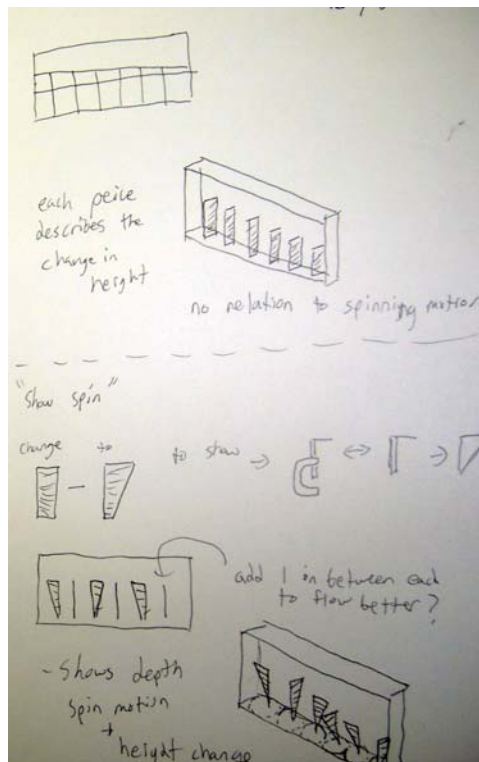 each peice
describes the
change in
height
no relation to spinning motion
"Show spin"
change to
to show
add 1 in between each
to flow better?
- Shows depth
spin motion
+
height change